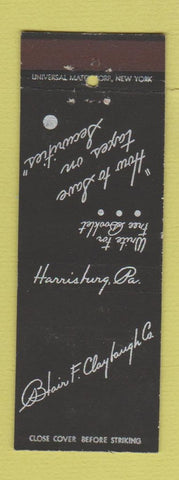 UNIVERSAL MATCH CORP., NEW YORK
"How to Save
taxes on
Securities"
Write for
Free Booklet
Harrisburg, Pa.
Blair F. Claybaugh Co.
CLOSE COVER BEFORE STRIKING